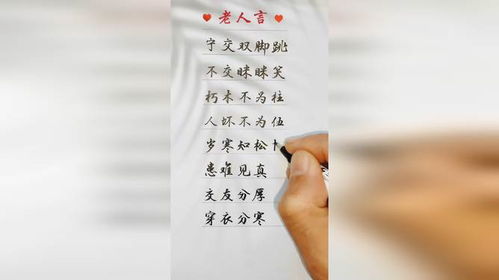 老人言
宁交双脚跳
不交眯眯笑
朽木不为柱
人坏不为伍
岁寒知松
患难见真
交友分厚
穿衣分寒